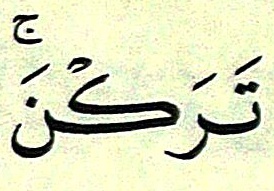 تَرَكْنَۚ